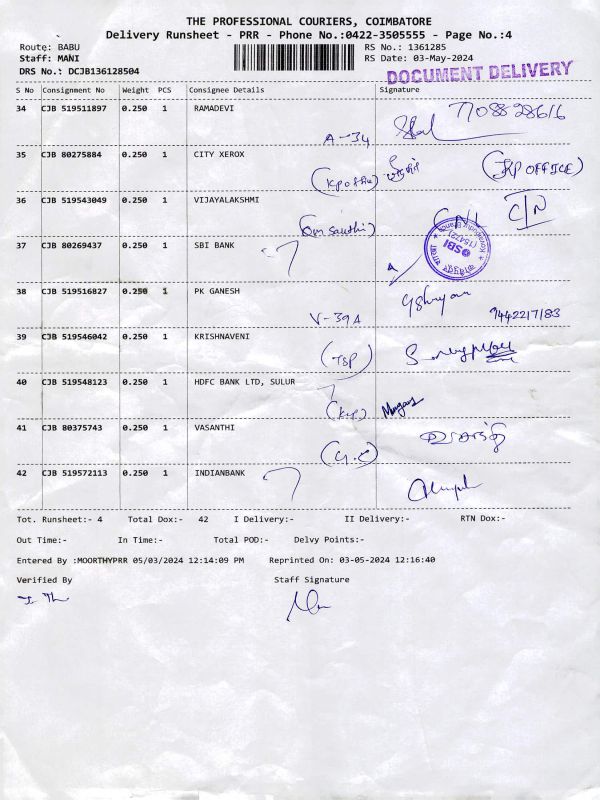 THE PROFESSIONAL COURIERS, COIMBATORE
Delivery Runsheet - PRR - Phone No.:0422-3505555 - Page No.:4
Route: BABU RS No.: 1361285
Staff: MANI RS Date: 03-May-2024
DRS No.: DCJB136128504 DOCUMENT DELIVERY
S No Consignment No Weight PCS Consignee Details Signature
34 CJB 519511897 0.250 1 RAMADEVI 7708828616
A-34
35 CJB 80275884 0.250 1 CITY XEROX (KP OFFICE)
36 CJB 519543049 0.250 1 VIJAYALAKSHMI C/N
(Om Santhi)
37 CJB 80269437 0.250 1 SBI BANK SBI
38 CJB 519516827 0.250 1 PK GANESH
V-39A 9442217183
39 CJB 519546042 0.250 1 KRISHNAVENI
(TSP)
40 CJB 519548123 0.250 1 HDFC BANK LTD, SULUR
41 CJB 80375743 0.250 1 VASANTHI
42 CJB 519572113 0.250 1 INDIANBANK
Tot. Runsheet:- 4 Total Dox:- 42 I Delivery:- II Delivery:- RTN Dox:-
Out Time:- In Time:- Total POD:- Delvy Points:-
Entered By :MOORTHYPRR 05/03/2024 12:14:09 PM Reprinted On: 03-05-2024 12:16:40
Verified By Staff Signature